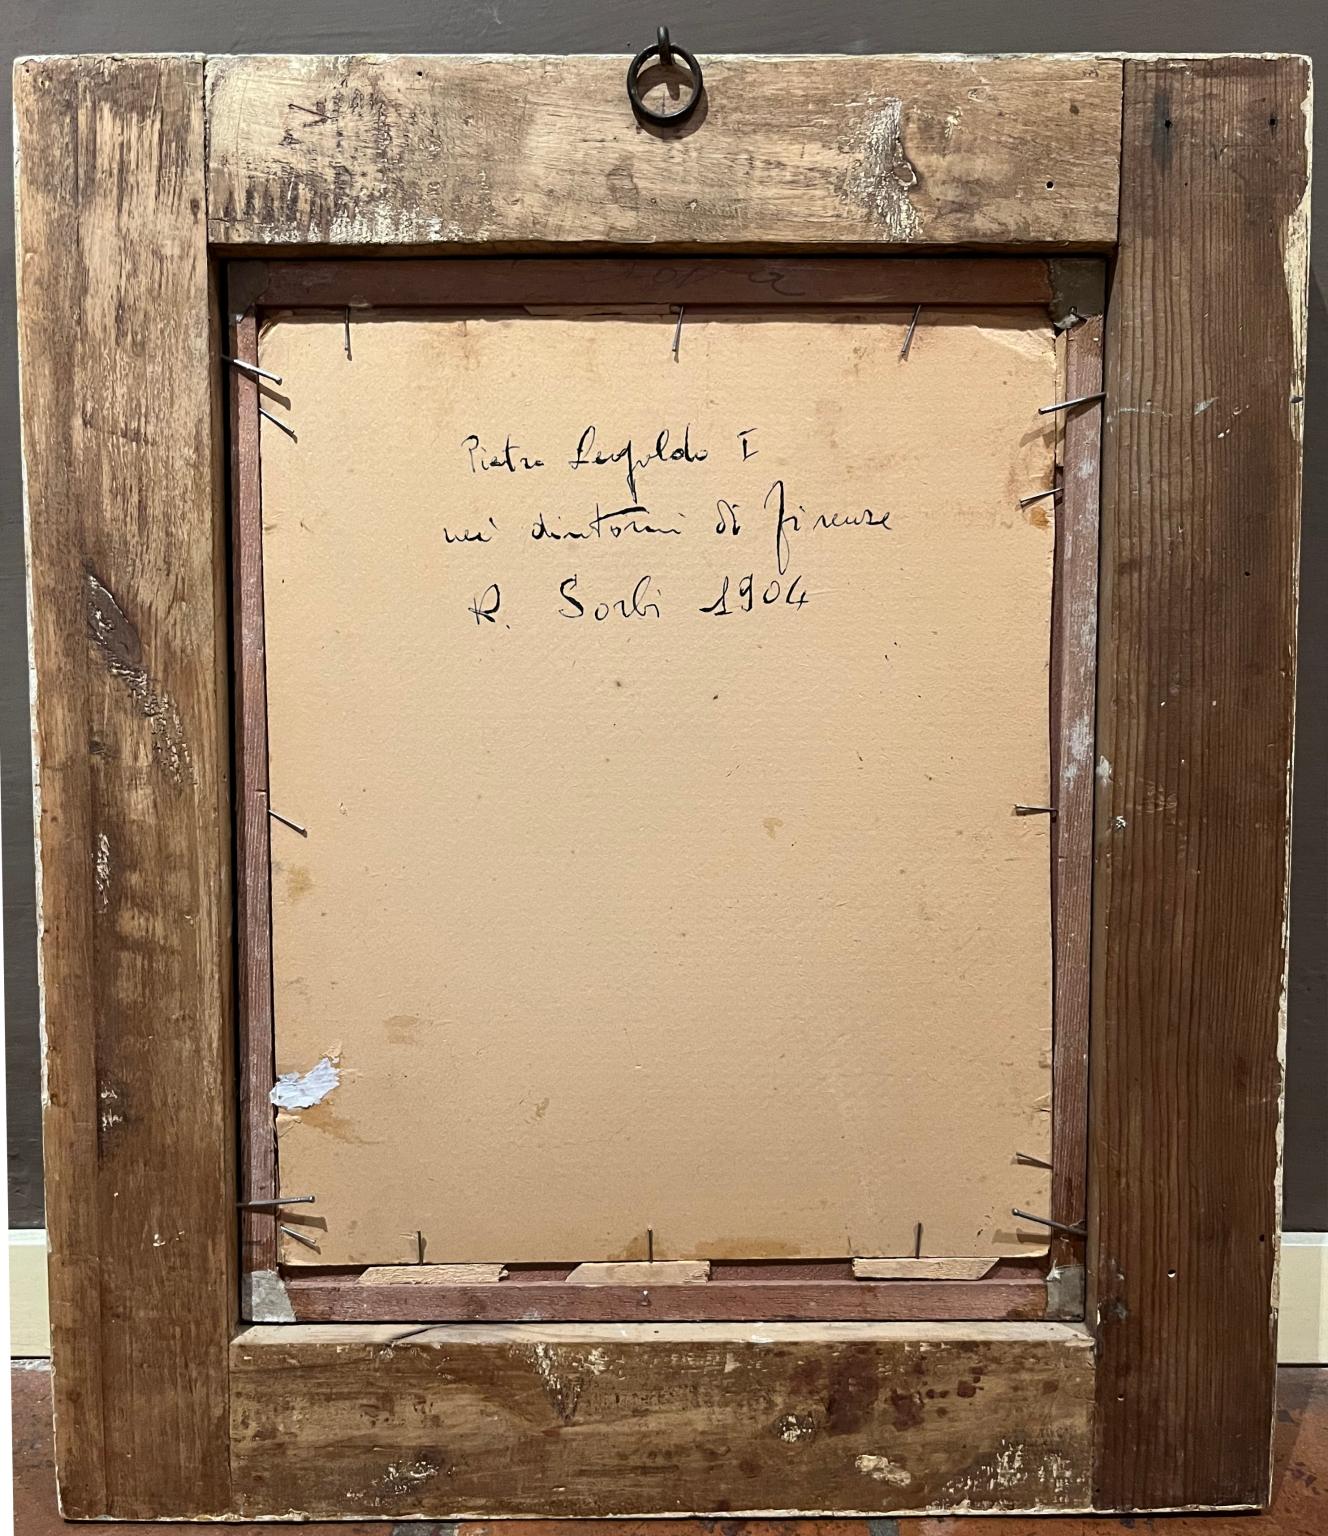 Pietro Leopoldo I
nei dintorni di Firenze
R. Sorbi 1904